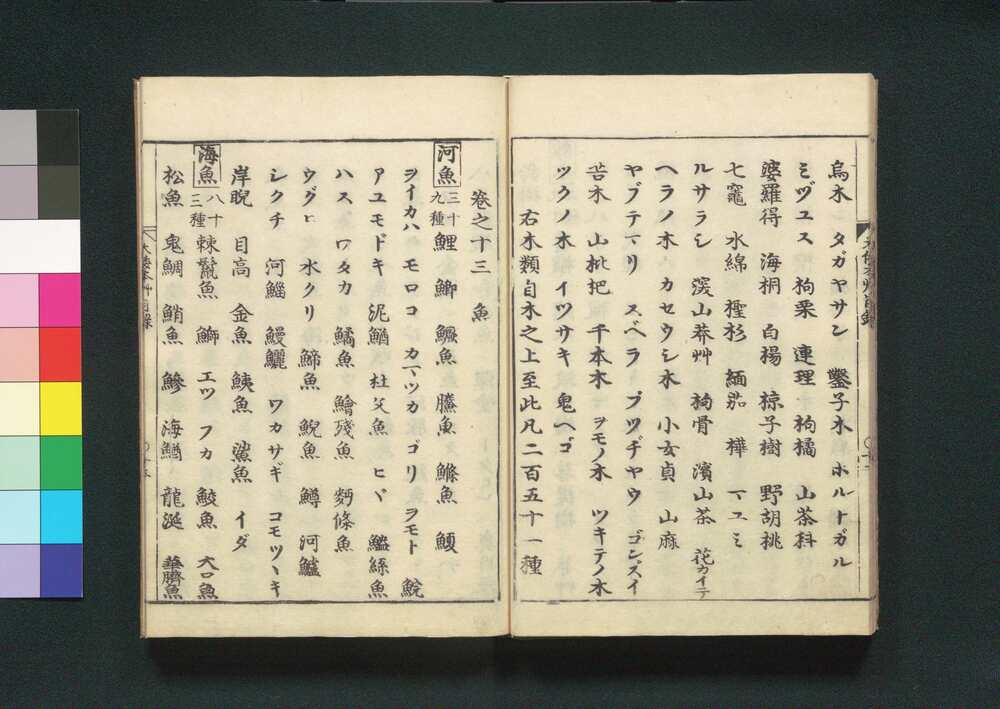 烏木 タガヤサン 鑿子木 ホルトガル
ミヅユス 拘栗 連理 枸橘 山茶科
婆羅得 海桐 白楊 椋子樹 野胡桃
七竈 水綿 檉杉 緬茄 樺 マユミ
ルサラシ 深山莽艸 枸骨 濱山茶 花カイデ
ヘラノ木 カセウシ木 小女貞 山麻
ヤブデマリ スベラ ブツヂヤウ ゴンズイ
苦木 山枇把 千本木 ヲモノ木 ツキデノ木
ツクノ木 イツサキ 鬼ヘゴ
右木類自水之上至此凡二百五十一種
巻之十三 魚
河魚 三十九種 鯉 鯽 鱖魚 鰧魚 鰷魚 鰋
ヲイカハ モロコ カマツカ ゴリ ヲモト 鯇
アユモドキ 泥鰌 杜父魚 ヒヾ 鱸絲魚
ハス ワタカ 鱊魚 鱠殘魚 麪條魚
ウグヒ 水クリ 鯑魚 鯢魚 鱒 河鱸
シクチ 河鯔 鰻鱺 ワカサギ コモツヽキ
岸睨 目高 金魚 鮧魚 鯊魚 イダ
海魚 八十三種 棘鬛魚 鰤 エツ フカ 鮫魚 大口魚
松魚 鬼鯛 鮹魚 鯵 海鰌 龍涎 華臍魚
大倭本艸目錄